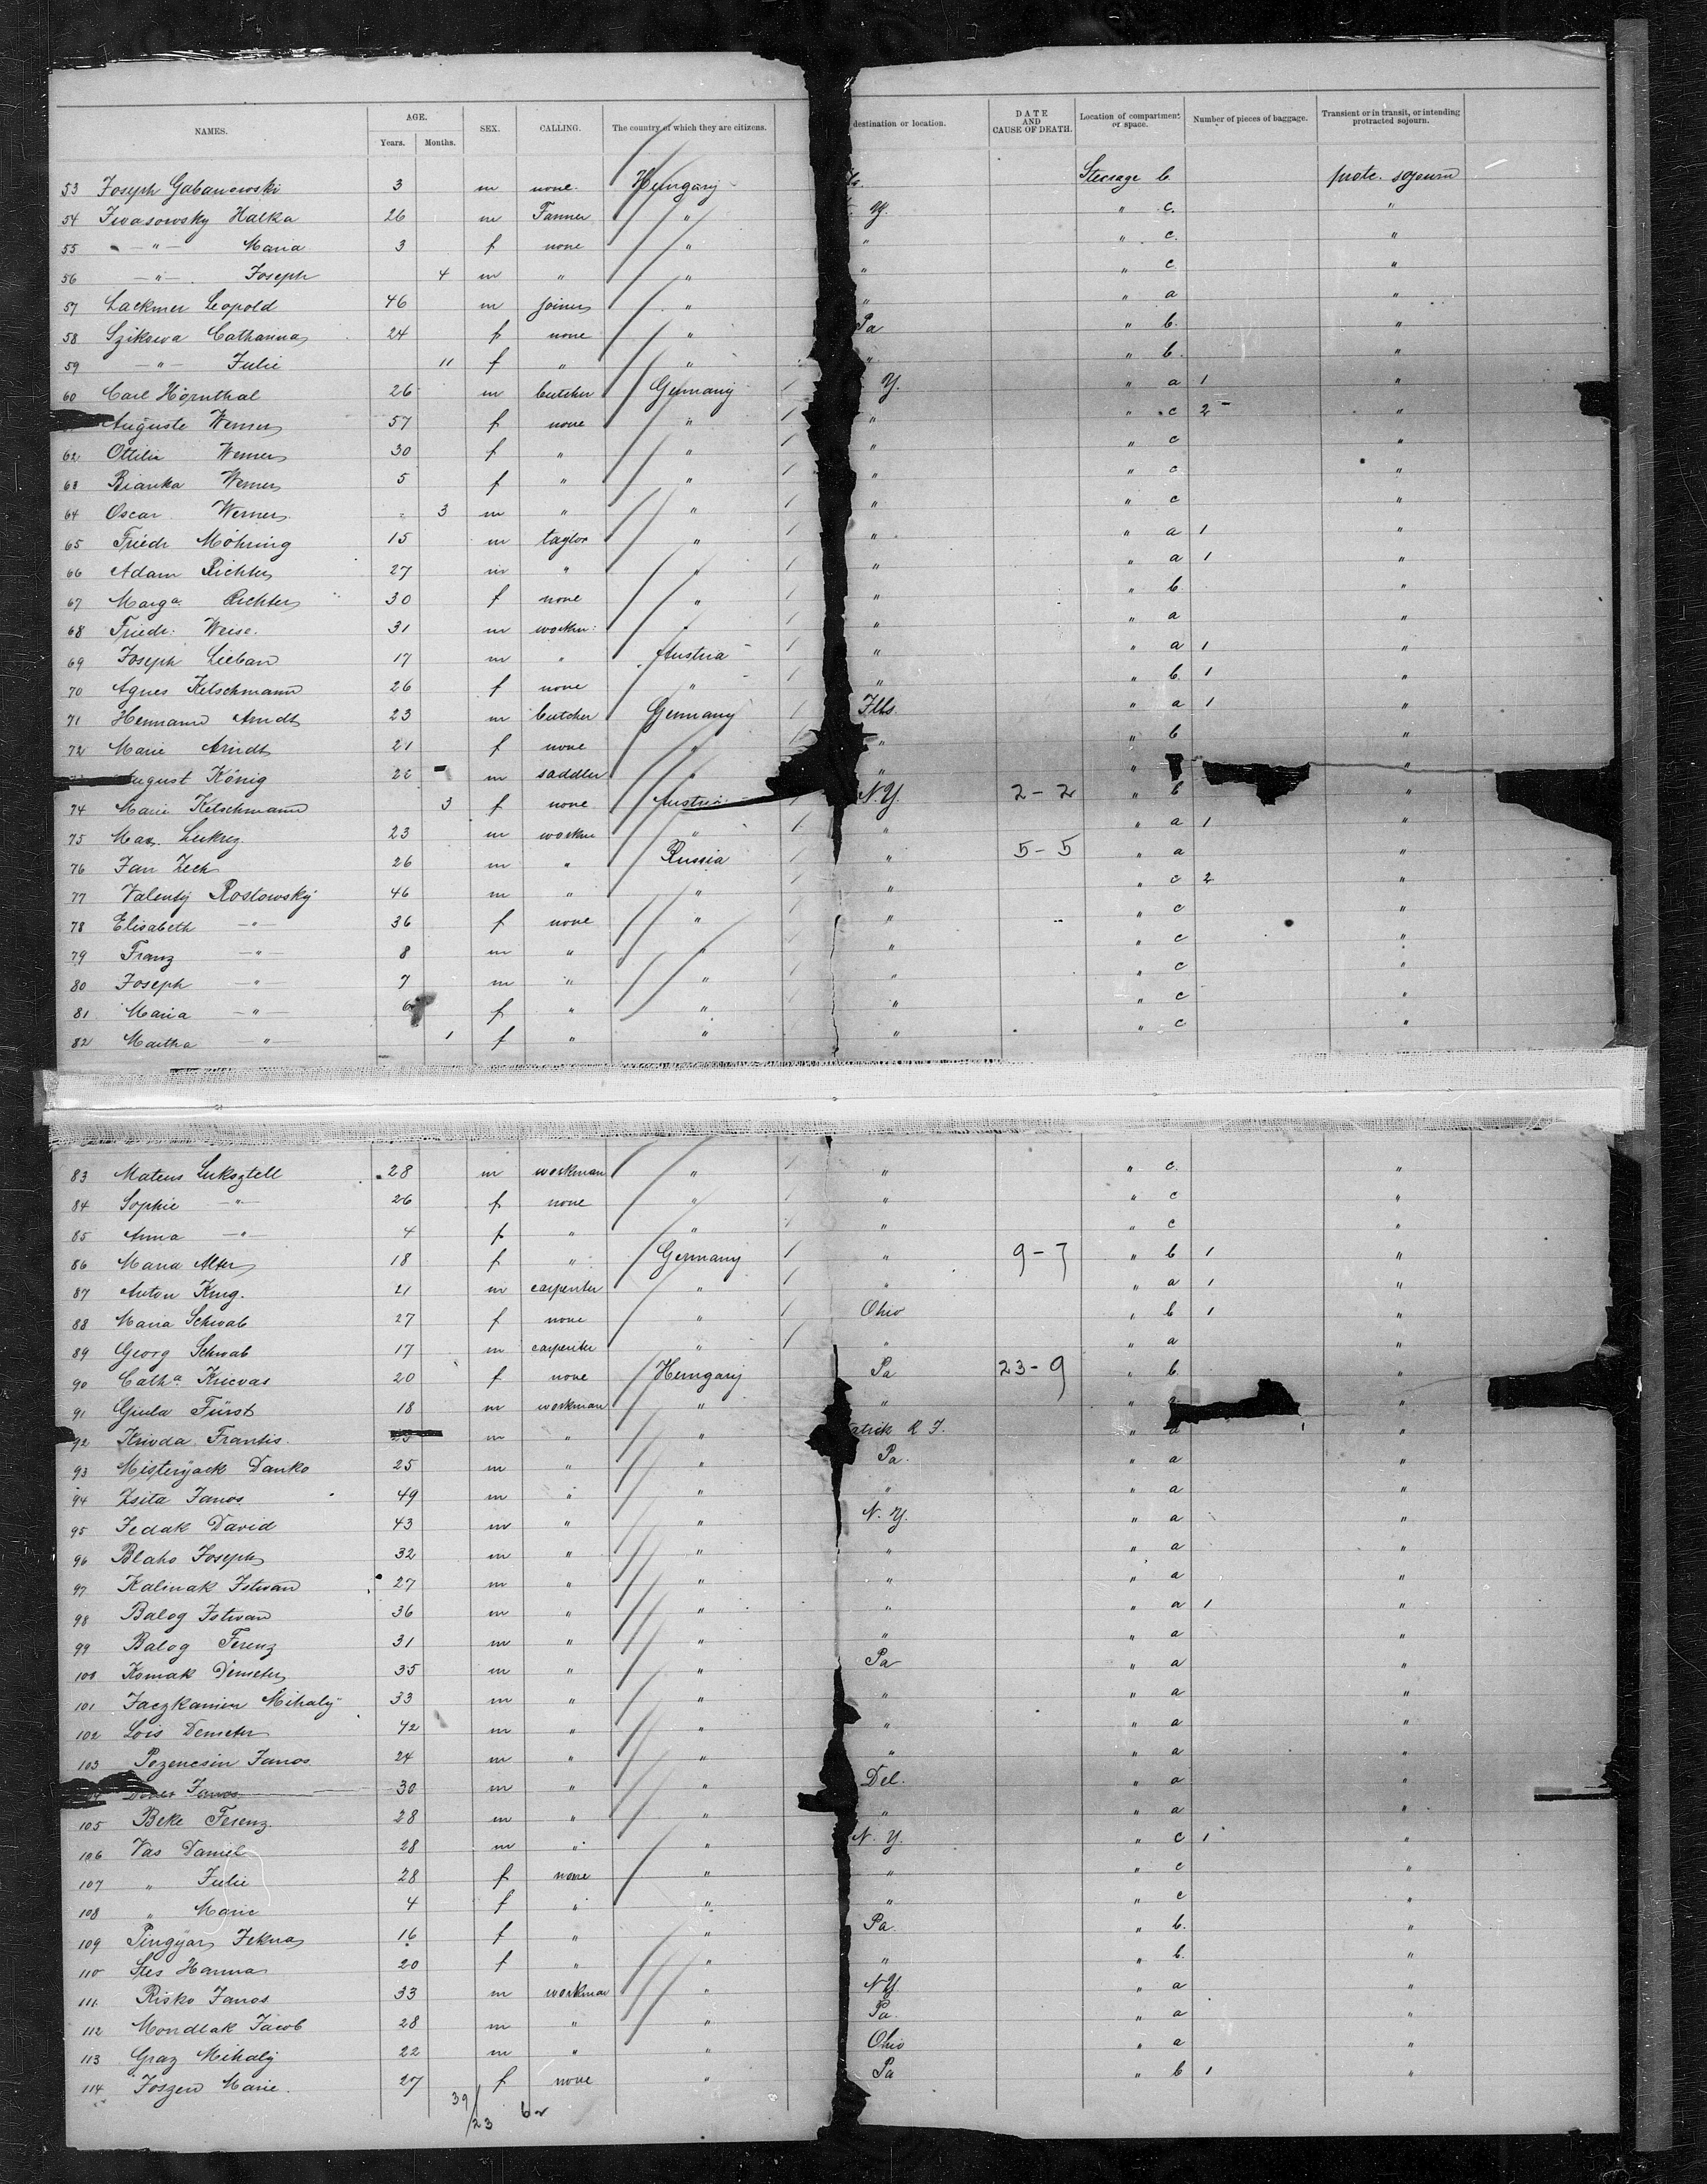 NAMES. AGE. Years. Months. SEX. CALLING. The country of which they are citizens. destination or location. DATE AND CAUSE OF DEATH. Location of compartment or space. Number of pieces of baggage. Transient or in transit, or intending protracted sojourn.
53 Joseph Gabanowski 3 m none. Hungary Steerage b. protc. sojourn
54 Iwasowsky Halka 26 m " Y. " c. "
55 — " — Maria 3 f none " " " c. "
56 — " — Joseph 4 m " " " " c. "
57 Lackmer Leopold 46 m joiner " " " a "
58 Szikowa Catharina 24 f none " Pa " b. "
59 — " — Julie 11 f " " " " b. "
60 Carl Hörnthal 26 m butcher Germany 1 Y. " a 1 "
Auguste Werner 57 f none " 1 " " c 2 "
62 Ottilie Werner 30 f " " 1 " " c "
63 Bianka Werner 5 f " " 1 " " c "
64 Oscar Werner 3 m " " 1 " " c "
65 Friedr Mohring 15 m taylor " 1 " " a 1 "
66 Adam Richter 27 m " " 1 " " a 1 "
67 Marga Richter 30 f none " 1 " " b. "
68 Friedr. Weise. 31 m worker: " 1 " " a "
69 Joseph Lieban 17 m " Austria 1 " " a 1 "
70 Agnes Ketschmann 26 f none " 1 " " b. 1 "
71 Hermann Arndt 23 m butcher Germany 1 Ills. " a 1 "
72 Marie Arndt 21 f none " 1 " " b "
August König 22 m saddler " " " "
74 Marie Ketschmann 3 f none Austria 1 N.Y. 2-2 " b "
75 Max. 23 m " 1 " " a 1 "
76 Jan Zech 26 m " Russia 1 " 5-5 " a "
77 Valenty Rostowsky 46 m " " 1 " " c 2 "
78 Elisabeth — " — 36 f none " 1 " " c "
79 Franz — " — 8 m " " 1 " " c "
80 Joseph — " — 7 m " " 1 " " c "
81 Maria — " — 6 f " " 1 " " c "
82 Martha — " — 1 f " " " " c "
83 Mateus Luksztell 28 m workman " 1 " " c. "
84 Sophie — " — 26 f none " 1 " " c "
85 Anna — " — 4 f " " 1 " " c "
86 Maria Alter 18 f " Germany 1 " 9-7 " b 1 "
87 Anton King. 21 m carpenter " 1 " " a 1 "
88 Maria Schwab 27 f none " 1 Ohio " b 1 "
89 Georg Schwab 17 m carpenter " 1 " " a "
90 Catha Kricvas 20 f none Hungary Pa 23-9 " b. "
91 Giula Fürst 18 m workman " " " "
92 Krivda Frantis. m " " " "
93 Misteryack Danko 25 m " " Pa. " a "
94 Zsita Janos. 49 m " " " " a "
95 Fedak David 43 m " " N. Y. " a "
96 Blaho Joseph 32 m " " " " a "
97 Kalinak Istwan 27 m " " " " a "
98 Balog Istwan 36 m " " " " a 1 "
99 Balog Ferenz 31 m " " " " a "
100 Komak Demeter 35 m " " Pa " a "
101 Jaczkanien Mihaly 33 m " " " " a "
102 Lois Demeter 42 m " " " " a "
103 Pozencsin Janos. 24 m " " " " a "
Janos 30 m " " Del. " a "
105 Beke Ferenz. 28 m " " " " a "
106 Vas Daniel 28 m " " N. Y. " c 1 "
107 " Julie 28 f none " " " c "
108 " Marie 4 f " " " " c "
109 Pingyar 16 f " " Pa. " b. "
110 Hanna 20 f " " " " b. "
111. Risko Janos. 33 m workman " N.Y. " a "
112 Mondlak Jacob 28 m " " Pa. " a "
113 Graz Mihaly 22 m " " Ohio " a "
114 Joszen Marie. 27 f none " Pa " b 1 "
39/23